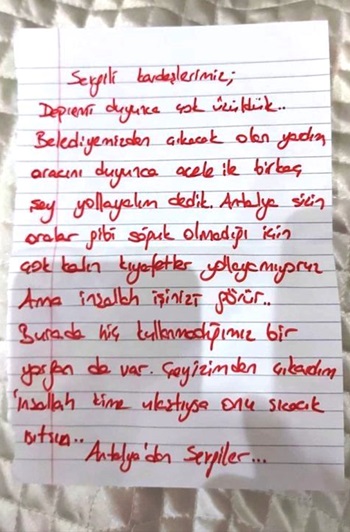 Sevgili kardeşlerimiz;
Depremi duyunca çok üzüldük..
Belediyemizden çıkacak olan yardım
aracını duyunca acele ile birkaç
şey yollayalım dedik. Antalya sizin
oralar gibi soğuk olmadığı için
çok kalın kıyafetler yollayamıyoruz
Ama inşallah işinizi görür..
Burada hiç kullanmadığımız bir
yorgan da var. Çeyizimden çıkardım
İnşallah kime ulaştıysa onu sıcacık
tutsun..
Antalya'dan Sevgiler...